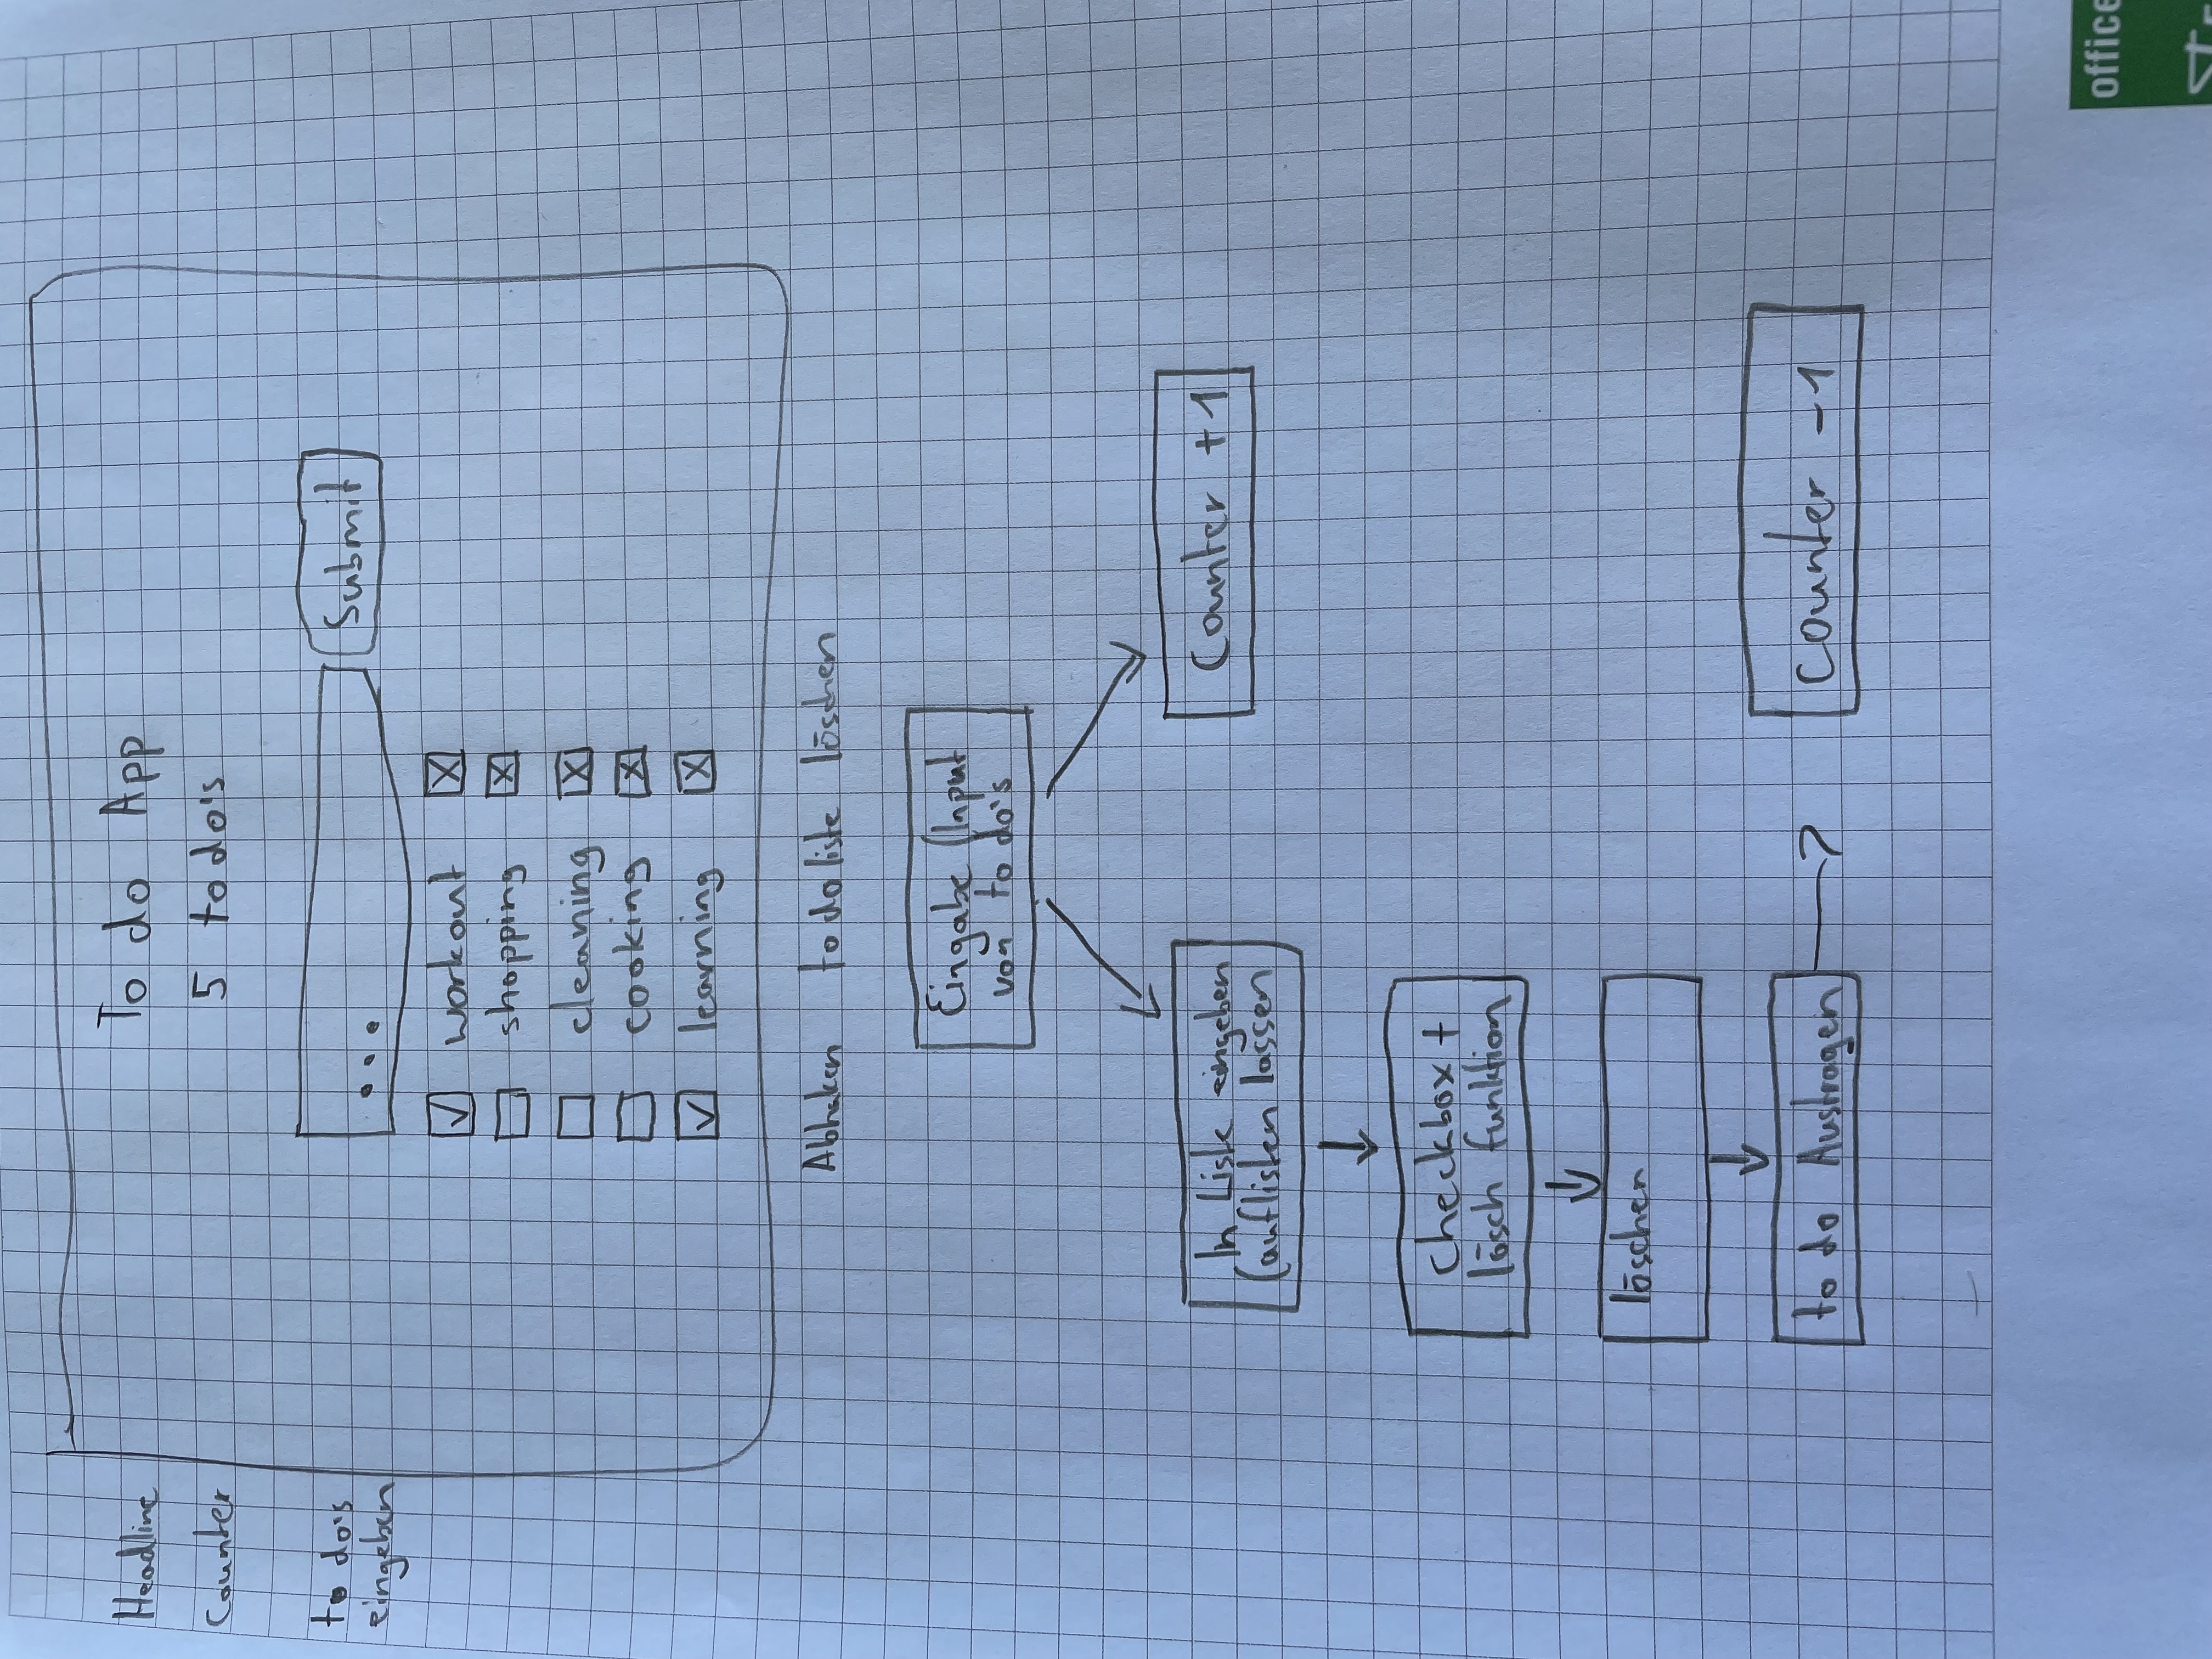 Headline
To do App
Counter
5 to do's
to do's
eingeben
...
Submit
workout
shopping
cleaning
cooking
learning
Abhaken to do liste löschen
Eingabe (Input
von to do's
In Liste eingeben
(auflisten lassen
Counter +1
Checkbox +
lösch funktion
löschen
to do Austragen
Counter -1
office